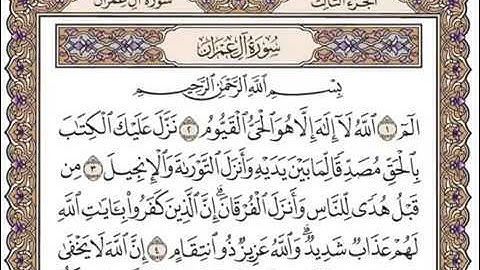 سورة آل عمران الجزء الثالث
سُورَةُ آلِ عِمْرَانَ
بِسْمِ اللَّهِ الرَّحْمَٰنِ الرَّحِيمِ
الٓمٓ ١ ٱللَّهُ لَآ إِلَٰهَ إِلَّا هُوَ ٱلْحَىُّ ٱلْقَيُّومُ ٢ نَزَّلَ عَلَيْكَ ٱلْكِتَٰبَ
بِٱلْحَقِّ مُصَدِّقًا لِّمَا بَيْنَ يَدَيْهِ وَأَنزَلَ ٱلتَّوْرَىٰةَ وَٱلْإِنجِيلَ ٣ مِن
قَبْلُ هُدًى لِّلنَّاسِ وَأَنزَلَ ٱلْفُرْقَانَ ۗ إِنَّ ٱلَّذِينَ كَفَرُوا۟ بِـَٔايَٰتِ ٱللَّهِ
لَهُمْ عَذَابٌ شَدِيدٌ ۗ وَٱللَّهُ عَزِيزٌ ذُو ٱنتِقَامٍ ٤ إِنَّ ٱللَّهَ لَا يَخْفَىٰ